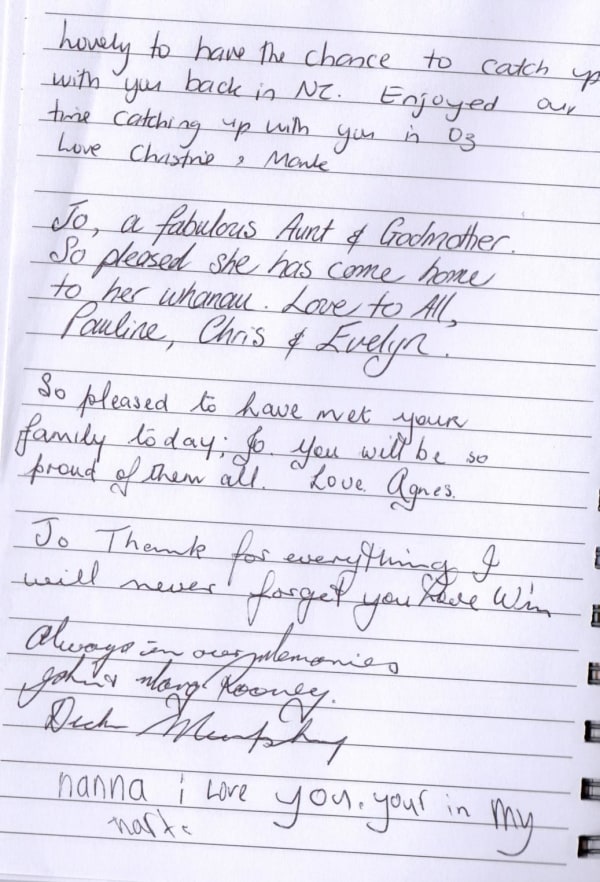 Lovely to have the chance to catch up
with you back in NZ. Enjoyed our
time catching up with you in Oz
Love Christine & Mark
Jo, a fabulous Aunt & Godmother.
So pleased she has come home
to her whanau. Love to All,
Pauline, Chris & Evelyn.
So pleased to have met your
family today; Jo. You will be so
proud of them all. Love Agnes.
Jo Thank for everything I
will never forget you Love Win
Always in our memories
John & Mary Rooney.
Murphy
nanna i Love you. your in my
hart.